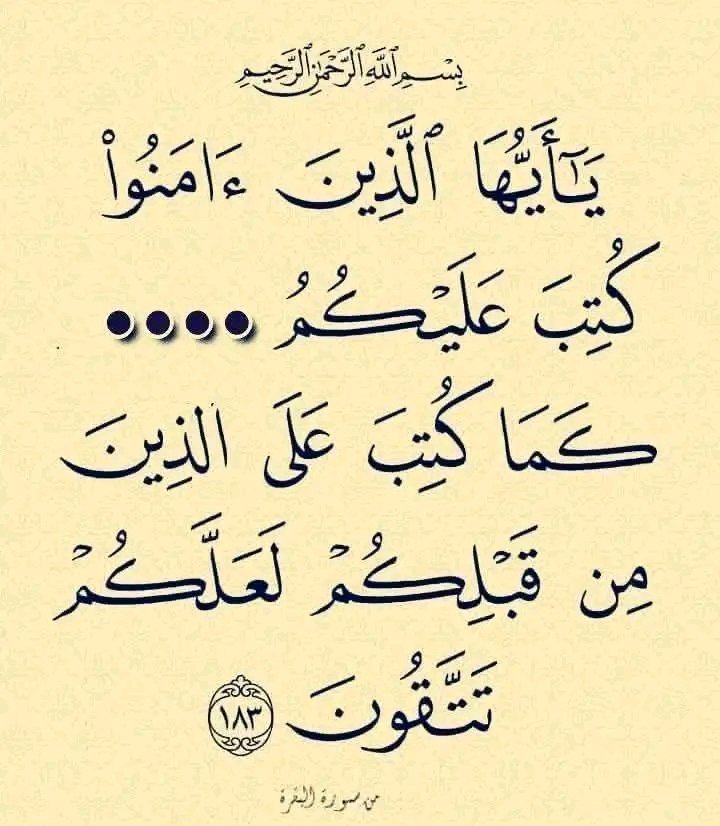 بِسْمِ ٱللَّهِ ٱلرَّحْمَٰنِ ٱلرَّحِيمِ
يَـٰٓأَيُّهَا ٱلَّذِينَ ءَامَنُوا۟
كُتِبَ عَلَيْكُمُ ••••
كَمَا كُتِبَ عَلَى الَّذِينَ
مِن قَبْلِكُمْ لَعَلَّكُمْ
تَتَّقُونَ ١٨٣
من سورة البقرة